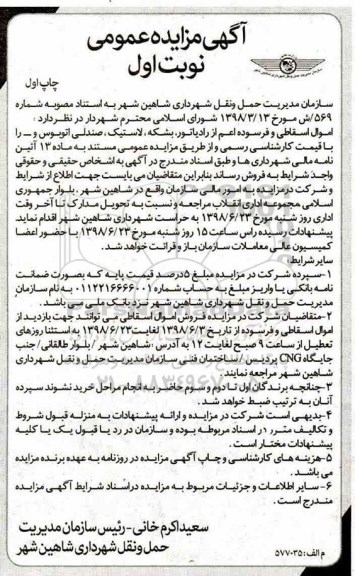 آگهی مزایده عمومی
نوبت اول
چاپ اول
سازمان مدیریت حمل ونقل شهرداری شاهین شهر به استناد مصوبه شماره
۵۶۹/ش مورخ ۱۳۹۸/۳/۱۳ شورای اسلامی محترم شهردار در نظر دارد :
اموال اسقاطی و فرسوده اعم از رادیاتور، بشکه ، لاستیک ، صندلی اتوبوس و ... را
با قیمت کارشناسی رسمی و از طریق مزایده عمومی مستند به ماده ۱۳ آئین
نامه مالی شهرداری ها و طبق اسناد مندرج در آگهی به اشخاص حقیقی و حقوقی
واجد شرایط به فروش رساند بنابراین متقاضیان می بایست جهت اطلاع از شرایط
و شرکت در مزایده با امور مالی سازمان واقع در شاهین شهر . بلوار جمهوری
اسلامی مجموعه اداری انقلاب مراجعه و نسبت به تحویل مدارک تا آخر وقت
اداری روز شنبه مورخ ۱۳۹۸/۶/۲۳ به حراست شهرداری شاهین شهر اقدام نمایند
پیشنهادات رسیده راس ساعت ۱۵ روز شنبه مورخ ۱۳۹۸/۶/۲۳ با حضور اعضا
کمیسیون عالی معاملات سازمان باز و قرائت خواهد شد .
سایر شرایط
۱-سپرده شرکت در مزایده مبلغ ۵درصد قیمت پایه که بصورت ضمانت
نامه بانکی یا واریز مبلغ به حساب شماره ۰۱۱۲۲۱۶۶۶۶۰۰۱ به نام سازمان
مدیریت حمل و نقل شهرداری شاهین شهر نزد بانک ملی می باشد .
۲-متقاضیان شرکت در مزایده فروش اموال اسقاطی می توانند جهت بازدید از
اموال اسقاطی و فرسوده از تاریخ ۱۳۹۸/۶/۳ لغایت ۱۳۹۸/۶/۲۳ به استثنا روزهای
تعطیل از ساعت ۹ صبح لغایت ۱۲ به آدرس . شاهین شهر / بلوار طالقانی / جنب
جایگاه CNG پردیس / ساختمان فنی سازمان مدیریت حمل و نقل شهرداری
شاهین شهر مراجعه نمایند .
۳-چنانچه برندگان اول تا دوم و سوم حاضر به انجام مراحل خرید نشوند سپرده
آنان به ترتیب ضبط خواهد شد .
۴-بدیهی است شرکت در مزایده و ارائه پیشنهادات به منزله قبول شروط
و تکالیف مقرر در اسناد مربوطه بوده و سازمان در رد یا قبول یک یا کلیه
پیشنهادات مختار است .
۵-هزینه های کارشناسی و چاپ آگهی مزایده در روزنامه به عهده برنده مزایده
می باشد .
۶- سایر اطلاعات و جزئیات مربوط به مزایده در اسناد شرایط آگهی مزایده
مندرج است .
سعید اکرم خانی - رئیس سازمان مدیریت
حمل و نقل شهرداری شاهین شهر
م الف : ۵۷۷۰۳۵